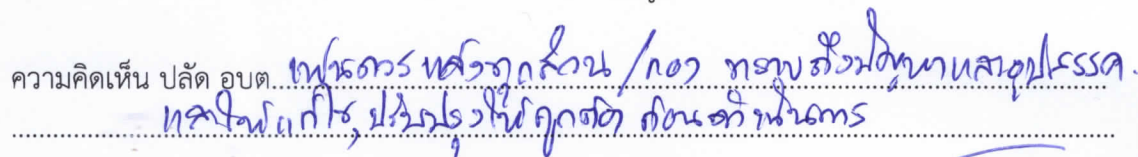 ความคิดเห็น ปลัด อบต. เห็นควรแจ้งทุกส่วน/กอง ทราบถึงปัญหาและอุปสรรค.
และให้แก้ไข, ปรับปรุงให้ถูกต้อง ก่อนดำเนินการ